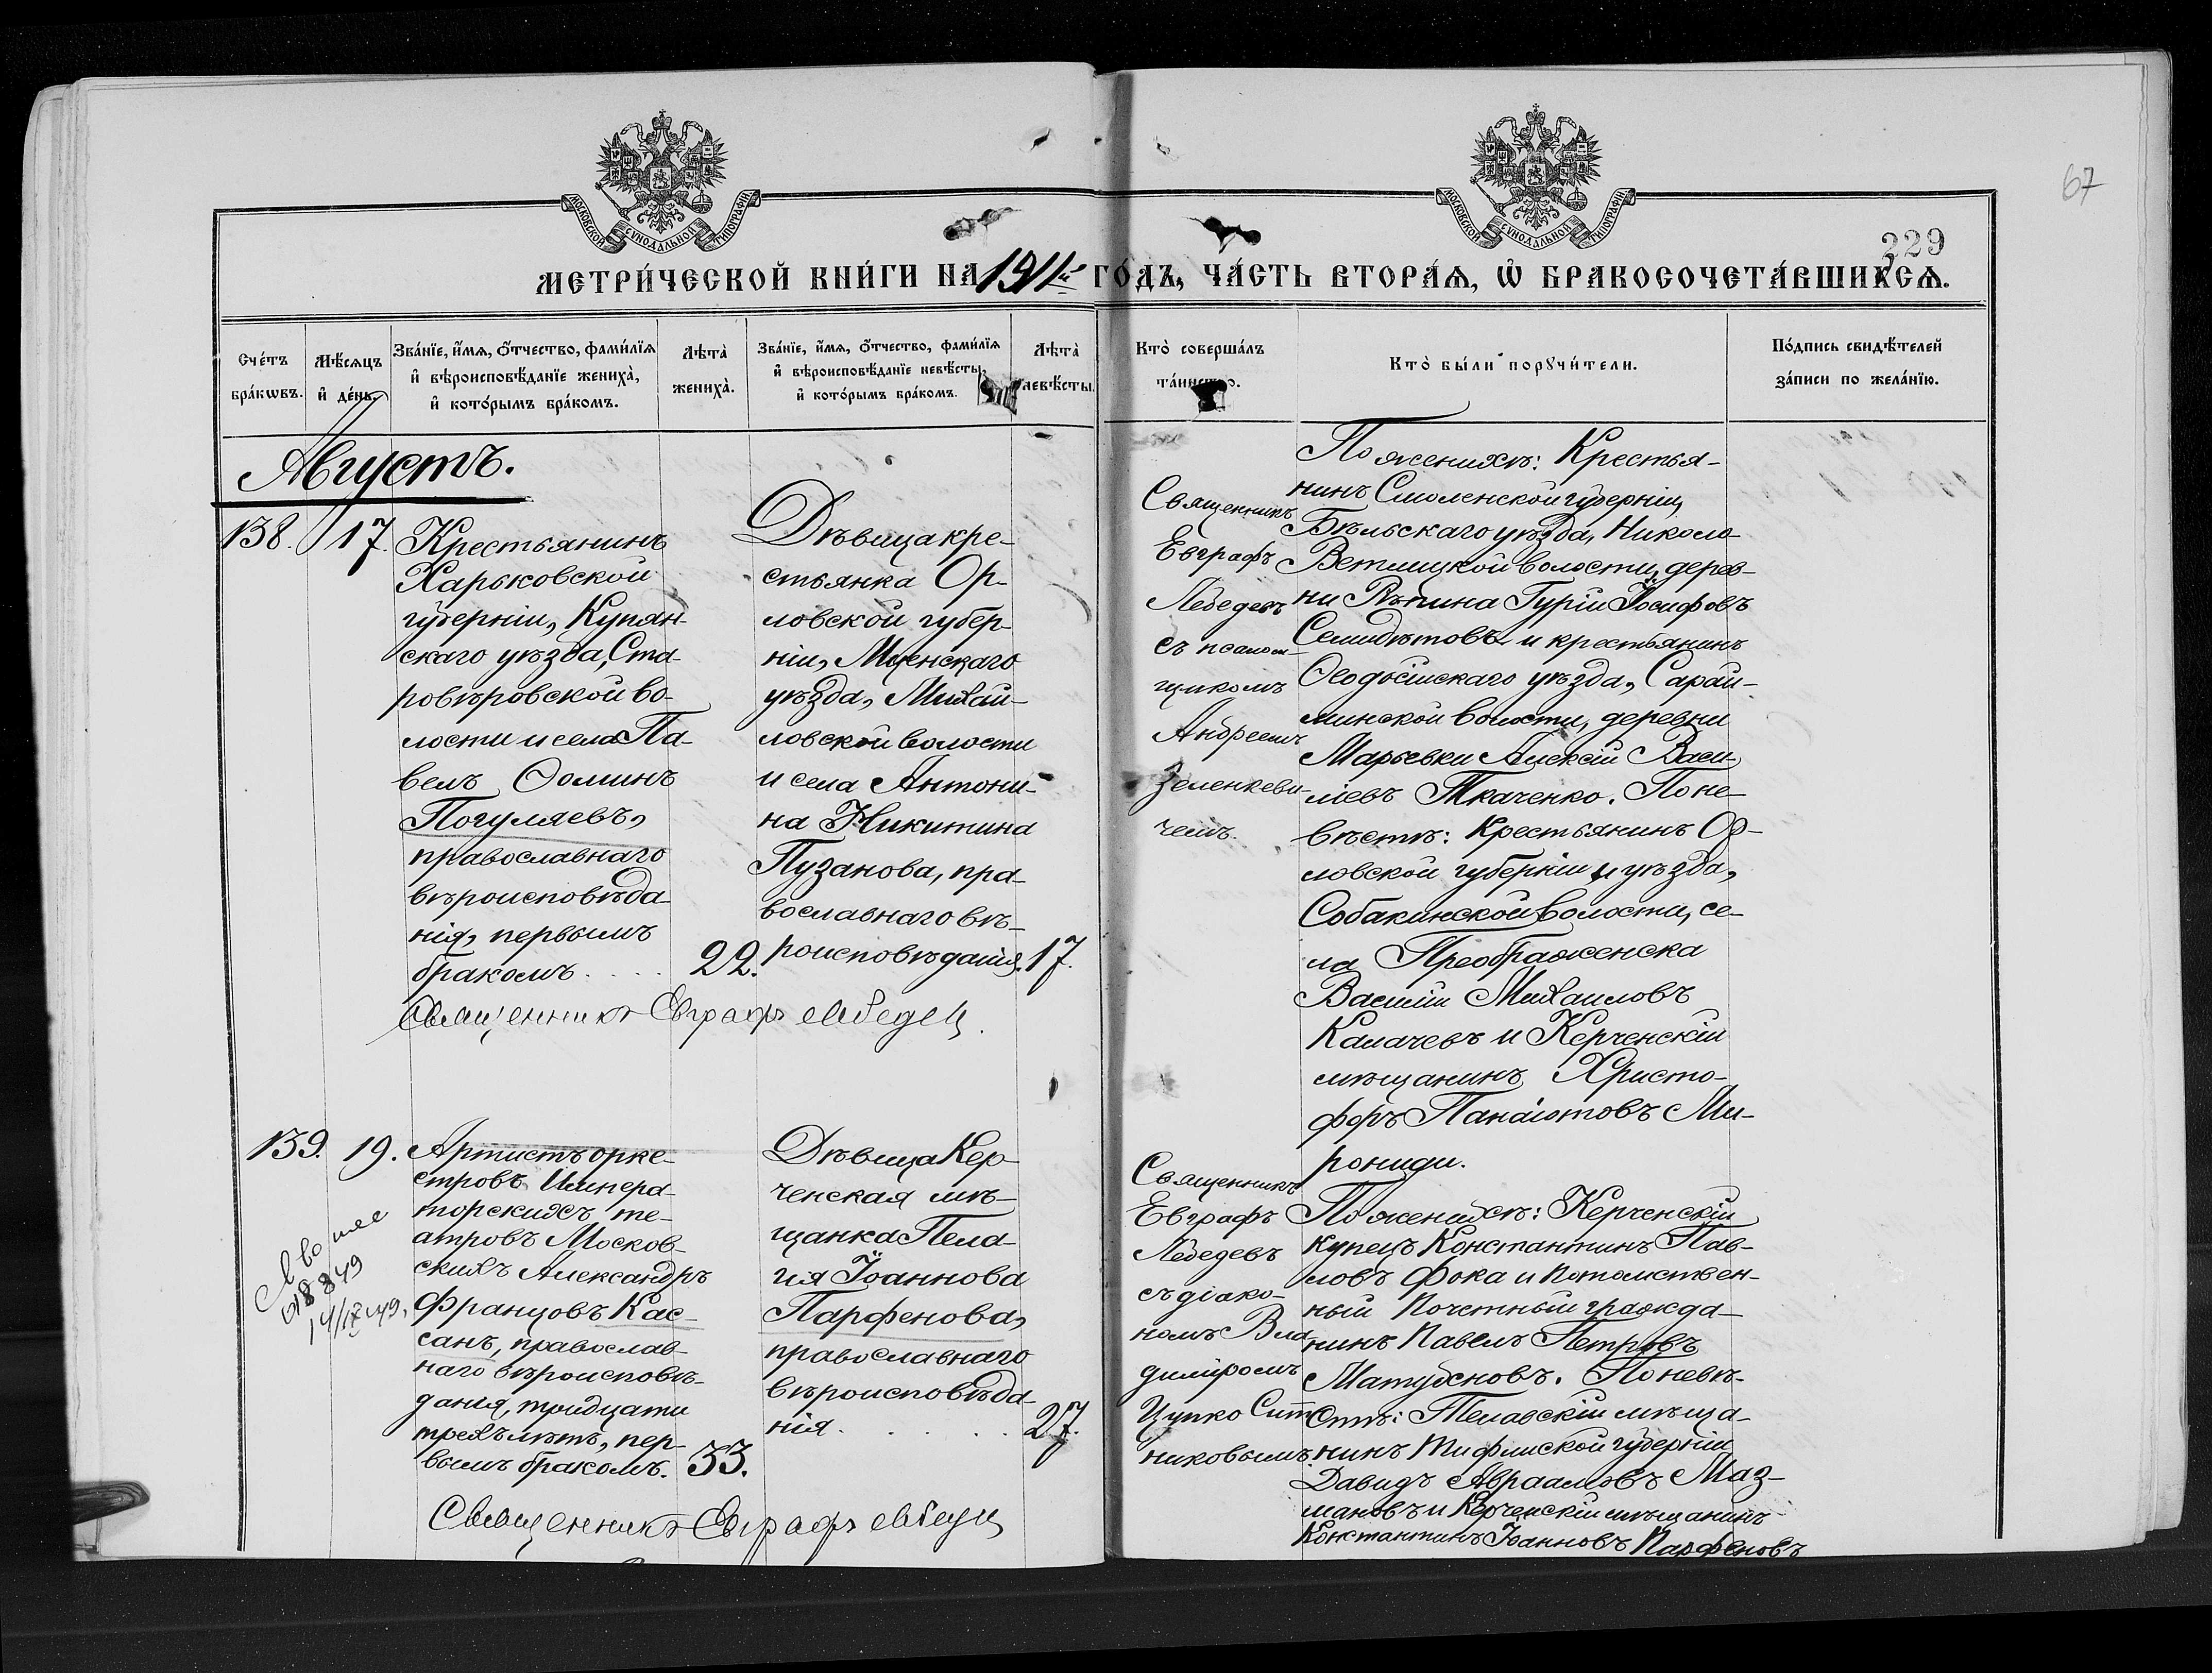 67
229
МОСКОВСКОЙ СѴНОДАЛЬНОЙ ТИПОГРАФІИ.
МОСКОВСКОЙ СѴНОДАЛЬНОЙ ТИПОГРАФІИ.
МЕТРИ́ЧЕСКОЙ КНИ́ГИ НА 1911й ГО́ДЪ, ЧА́СТЬ ВТОРА́Я, Ѡ҆ БРАКОСОЧЕТА́ВШИХСЯ.
Сче́тъ
бра́кѡвъ.
Мѣ́сяцъ
и҆ де́нь.
Зва́нїе, и҆́мя, о҆́тчество, фами́лїя
и҆ вѣроисповѣ́данїе жениха̀,
и҆ кото́рымъ бра́комъ.
Лѣта̀
жениха̀.
Зва́нїе, и҆́мя, о҆́тчество, фами́лїя
и҆ вѣроисповѣ́данїе невѣ́сты,
и҆ кото́рымъ бра́комъ.
Лѣта̀
невѣ́сты.
Кто̀ соверша́лъ
та́инство.
Кто̀ бы́ли порꙋчи́тели.
По́дпись свидѣ́телей
за́писи по жела́нїю.
Августъ.
138.
17.
Крестьянинъ
Харьковской
губерніи, Купян-
скаго уѣзда, Ста-
ровѣровской во-
лости и села Па-
велъ Ѳоминъ
Погуляевъ,
православнаго
вѣроисповѣда
нія, первымъ
бракомъ....
22.
Дѣвица кре-
стьянка Ор-
ловской губер-
ніи, Мценскаго
уѣзда, Михай-
ловской волости
и села Антони-
на Никитина
Пузанова, пра-
вославнаго вѣ-
роисповѣданія.
17.
Священникъ Евграфъ Лебедевъ.
Священникъ
Евграфъ
Лебедевъ
съ псалом-
щикомъ
Андреемъ
Зеленкеви
чемъ.
По женихѣ: Крестья-
нинъ Смоленской губерніи,
Бѣльскаго уѣзда, Николо
Ветлицкой волости, дерев-
ни Рѣпина Гурій Іосифовъ
Семидѣтовъ и крестьянинъ
Ѳеодосійскаго уѣзда, Сарай-
минской волости, деревни
Марьевки Алексій Васи-
ліевъ Ткаченко. По не-
вѣстѣ: Крестьянинъ Ор-
ловской губерніи и уѣзда,
Собакинской волости, се-
ла Преображенска
Василій Михаиловъ
Калачевъ и Керченскій
мѣщанинъ Христо-
форъ Панаіотовъ Ми-
рониди.
139.
19.
018849
Артистъ орке-
стровъ Импера
торскихъ те-
атровъ Москов-
скихъ Александръ
Францовъ Кас-
санъ, православ-
наго вѣроисповѣ-
данія, тридцати
трехъ лѣтъ, пер-
вымъ бракомъ.
33.
Дѣвица Кер-
ченская мѣ-
щанка Пела-
гія Іоаннова
Парфенова,
православнаго
вѣроисповѣда-
нія......
27.
Священникъ Евграфъ Лебедевъ
Священникъ
Евграфъ
Лебедевъ
съ діако-
номъ Вла
диміромъ
Цупко Сит
никовымъ.
По женихѣ: Керченскій
купецъ Константинъ Пав-
ловъ Фока и Потомствен-
ный Почетный гражда-
нинъ Павелъ Петровъ
Матусновъ. По невѣ-
стѣ: Телавскій мѣща-
нинъ Тифлиской губерніи
Давидъ Авраамовъ Маз-
мановъ и Керченскій мѣщанинъ
Константинъ Іоанновъ Парфеновъ